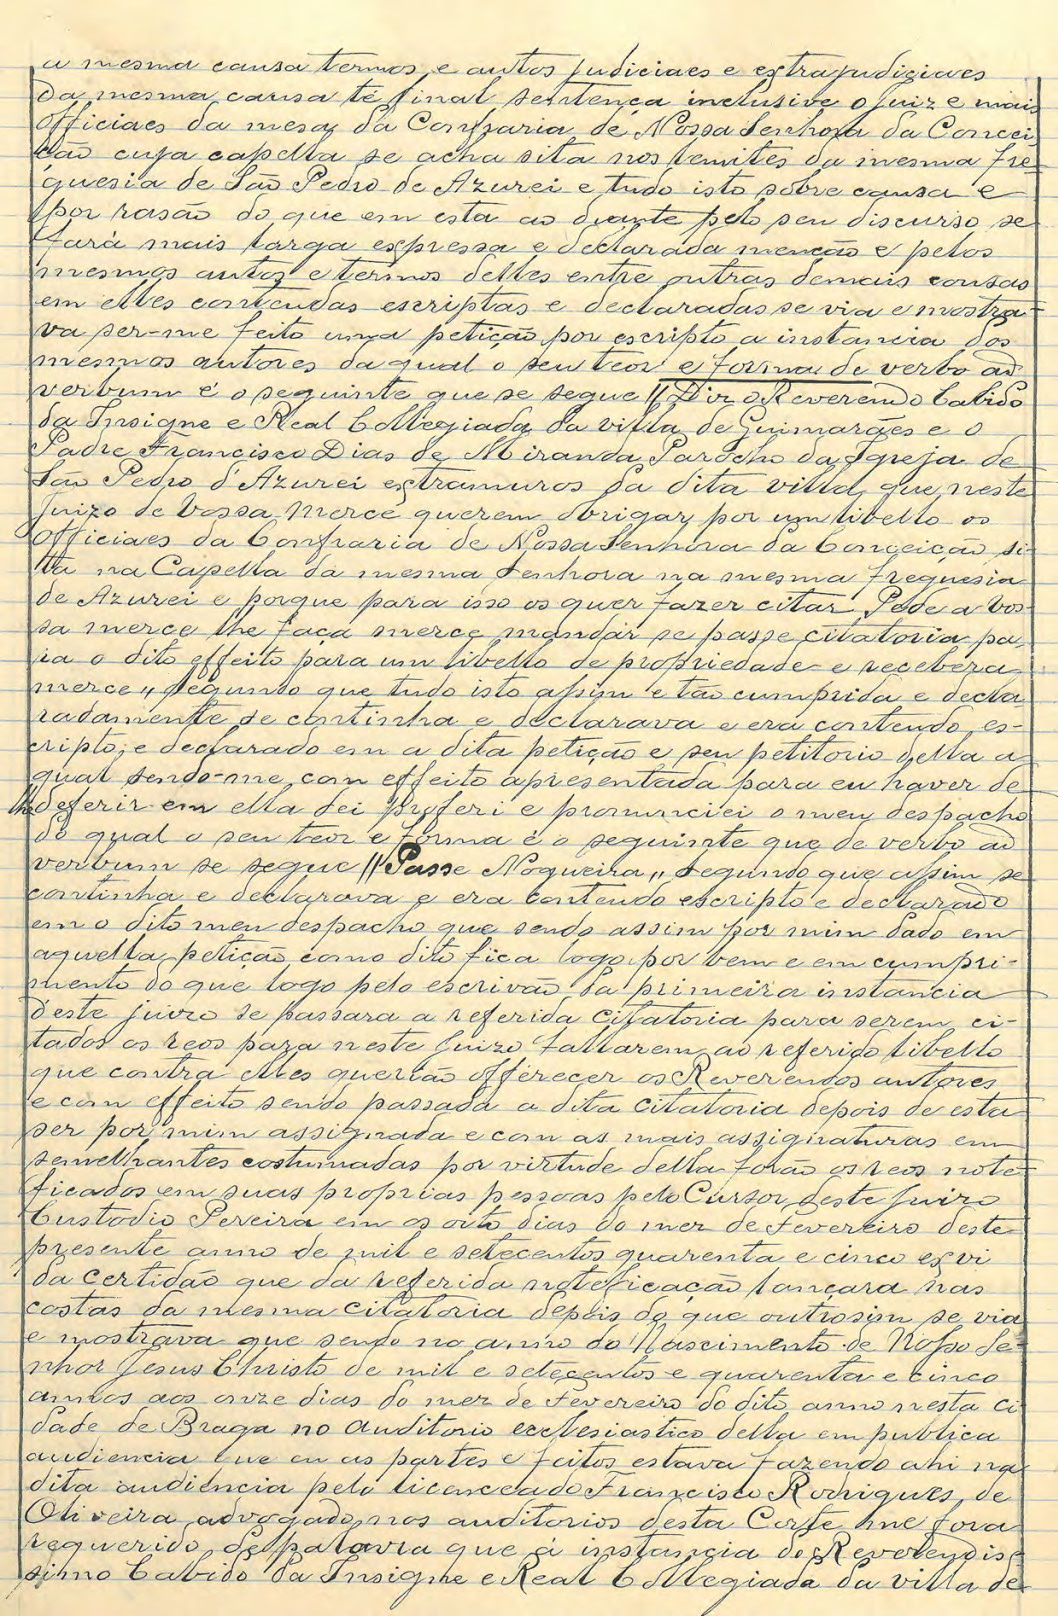 a mesma causa termos e autos judiciaes e extrajudiciaes
da mesma causa té final sentença inclusive o juiz e mais
officiaes da mesa da Confraria de Nossa Senhora da Concei
ção cuja capella se acha sita nos lemites da mesma fre-
guesia de São Pedro de Azurei e tudo isto sobre causa e
por rasão do que em esta ao diante pelo seu discurso se
fará mais larga expressa e declarada menção e pelos
mesmos autos e termos delles entre outras demais cousas
em elles contendas escriptas e declaradas se via e mostra-
va ser-me feito uma petição por escripto a instancia dos
mesmos autores da qual o seu teor e forma de verbo ad
verbum é o seguinte que se segue // Diz o Reverendo Cabido
da Insigne e Real Collegiada da villa de Guimarães e o
Padre Francisco Dias de Miranda Parocho da Igreja de
São Pedro d'Azurei extramuros da dita villa, que neste
Juizo de Vossa Mercê querem obrigar por um libello os
officiaes da Confraria de Nossa Senhora da Conceição si-
ta na Capella da mesma Senhora na mesma freguesia
de Azurei e porque para isso os quer fazer citar Pede a Vos-
sa merce lhe faça merce mandar se passe citatoria pa-
ra o dito effeito para um libello de propriedade e receberá
merce,, segundo que tudo isto assim e tão cumprida e decla
radamente se continha e declarava e era contendo es-
cripto, e declarado em a dita petição e seu petitorio della a
qual sendo-me com effeito apresentada para eu haver de
deferir em ella dei proferi e pronunciei o meu despacho
do qual o seu teor e forma é o seguinte que de verbo ad
verbum se segue // Passe Nogueira,, segundo que assim se
continha e declarava e era contendo escripto e declarado
em o dito meu despacho que sendo assim por mim dado em
aquella petição como dito fica logo por bem e em cumpri-
mento do que logo pelo escrivão da primeira instancia
d'este juizo se passara a referida citatoria para serem ci-
tados os reos para neste Juizo fallarem ao referido libello
que contra elles querião offerecer os Reverendos autores
e com effeito sendo passada a dita citatoria depois de esta
ser por mim assignada e com as mais assignaturas em
semelhantes costumadas por virtude della forão os reos note-
ficados em suas proprias pessoas pelo Cursor deste Juizo
Custodio Pereira em os oito dias do mez de Fevereiro deste
presente anno de mil e setecentos quarenta e cinco ex vi
da certidão que da referida noteficação lançara nas
costas da mesma citatoria depois do que outrosim se via
e mostrava que sendo no anno do Nascimento de Nosso Se-
nhor Jesus Christo de mil e setecentos e quarenta e cinco
annos aos onze dias do mez de Fevereiro do dito anno nesta ci
dade de Braga no auditorio ecclesiastico della em publica
audiencia que eu as partes e feitos estava fazendo ahi na
dita audiencia pelo licenceado Francisco Rodrigues de
Oliveira advogado nos auditorios desta Corte me fora
requerido de palavra que á instancia do Reverendis-
simo Cabido da Insigne e Real Collegiada da villa de